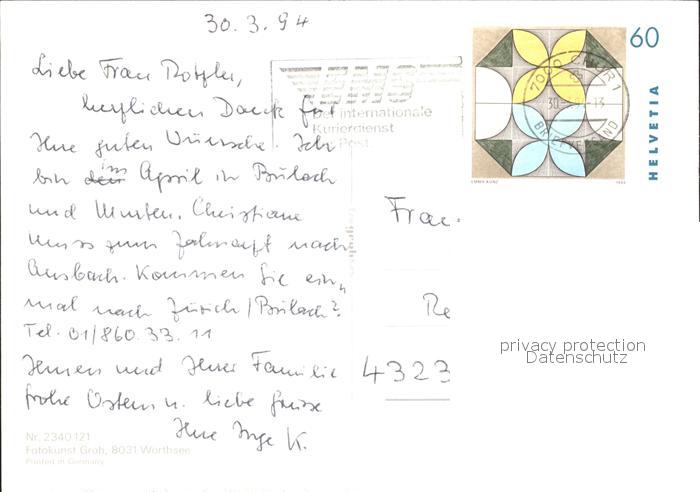 30.3.94
Liebe Frau Rotzler,
herzlichen Dank für
Ihre guten Wünsche. Ich
bin im April in Bülach
und Murten. Christiane
muss zum Zahnarzt nach
Ansbach. Kommen Sie ein-
mal nach Zürich/Bülach?
Tel. 01/860 33 11
Ihnen und Ihrer Familie
frohe Ostern u. liebe Grüsse
Ihre Inge K.
Nr. 2340121
Fotokunst Groh, 8031 Wörthsee
Printed in Germany
EMS
Der internationale
Kurierdienst
Post
7000 CHUR 1
30
13
BRIEFVERSAND
60
HELVETIA
EMMA KUNZ
1993
Frau
4323
privacy protection
Datenschutz